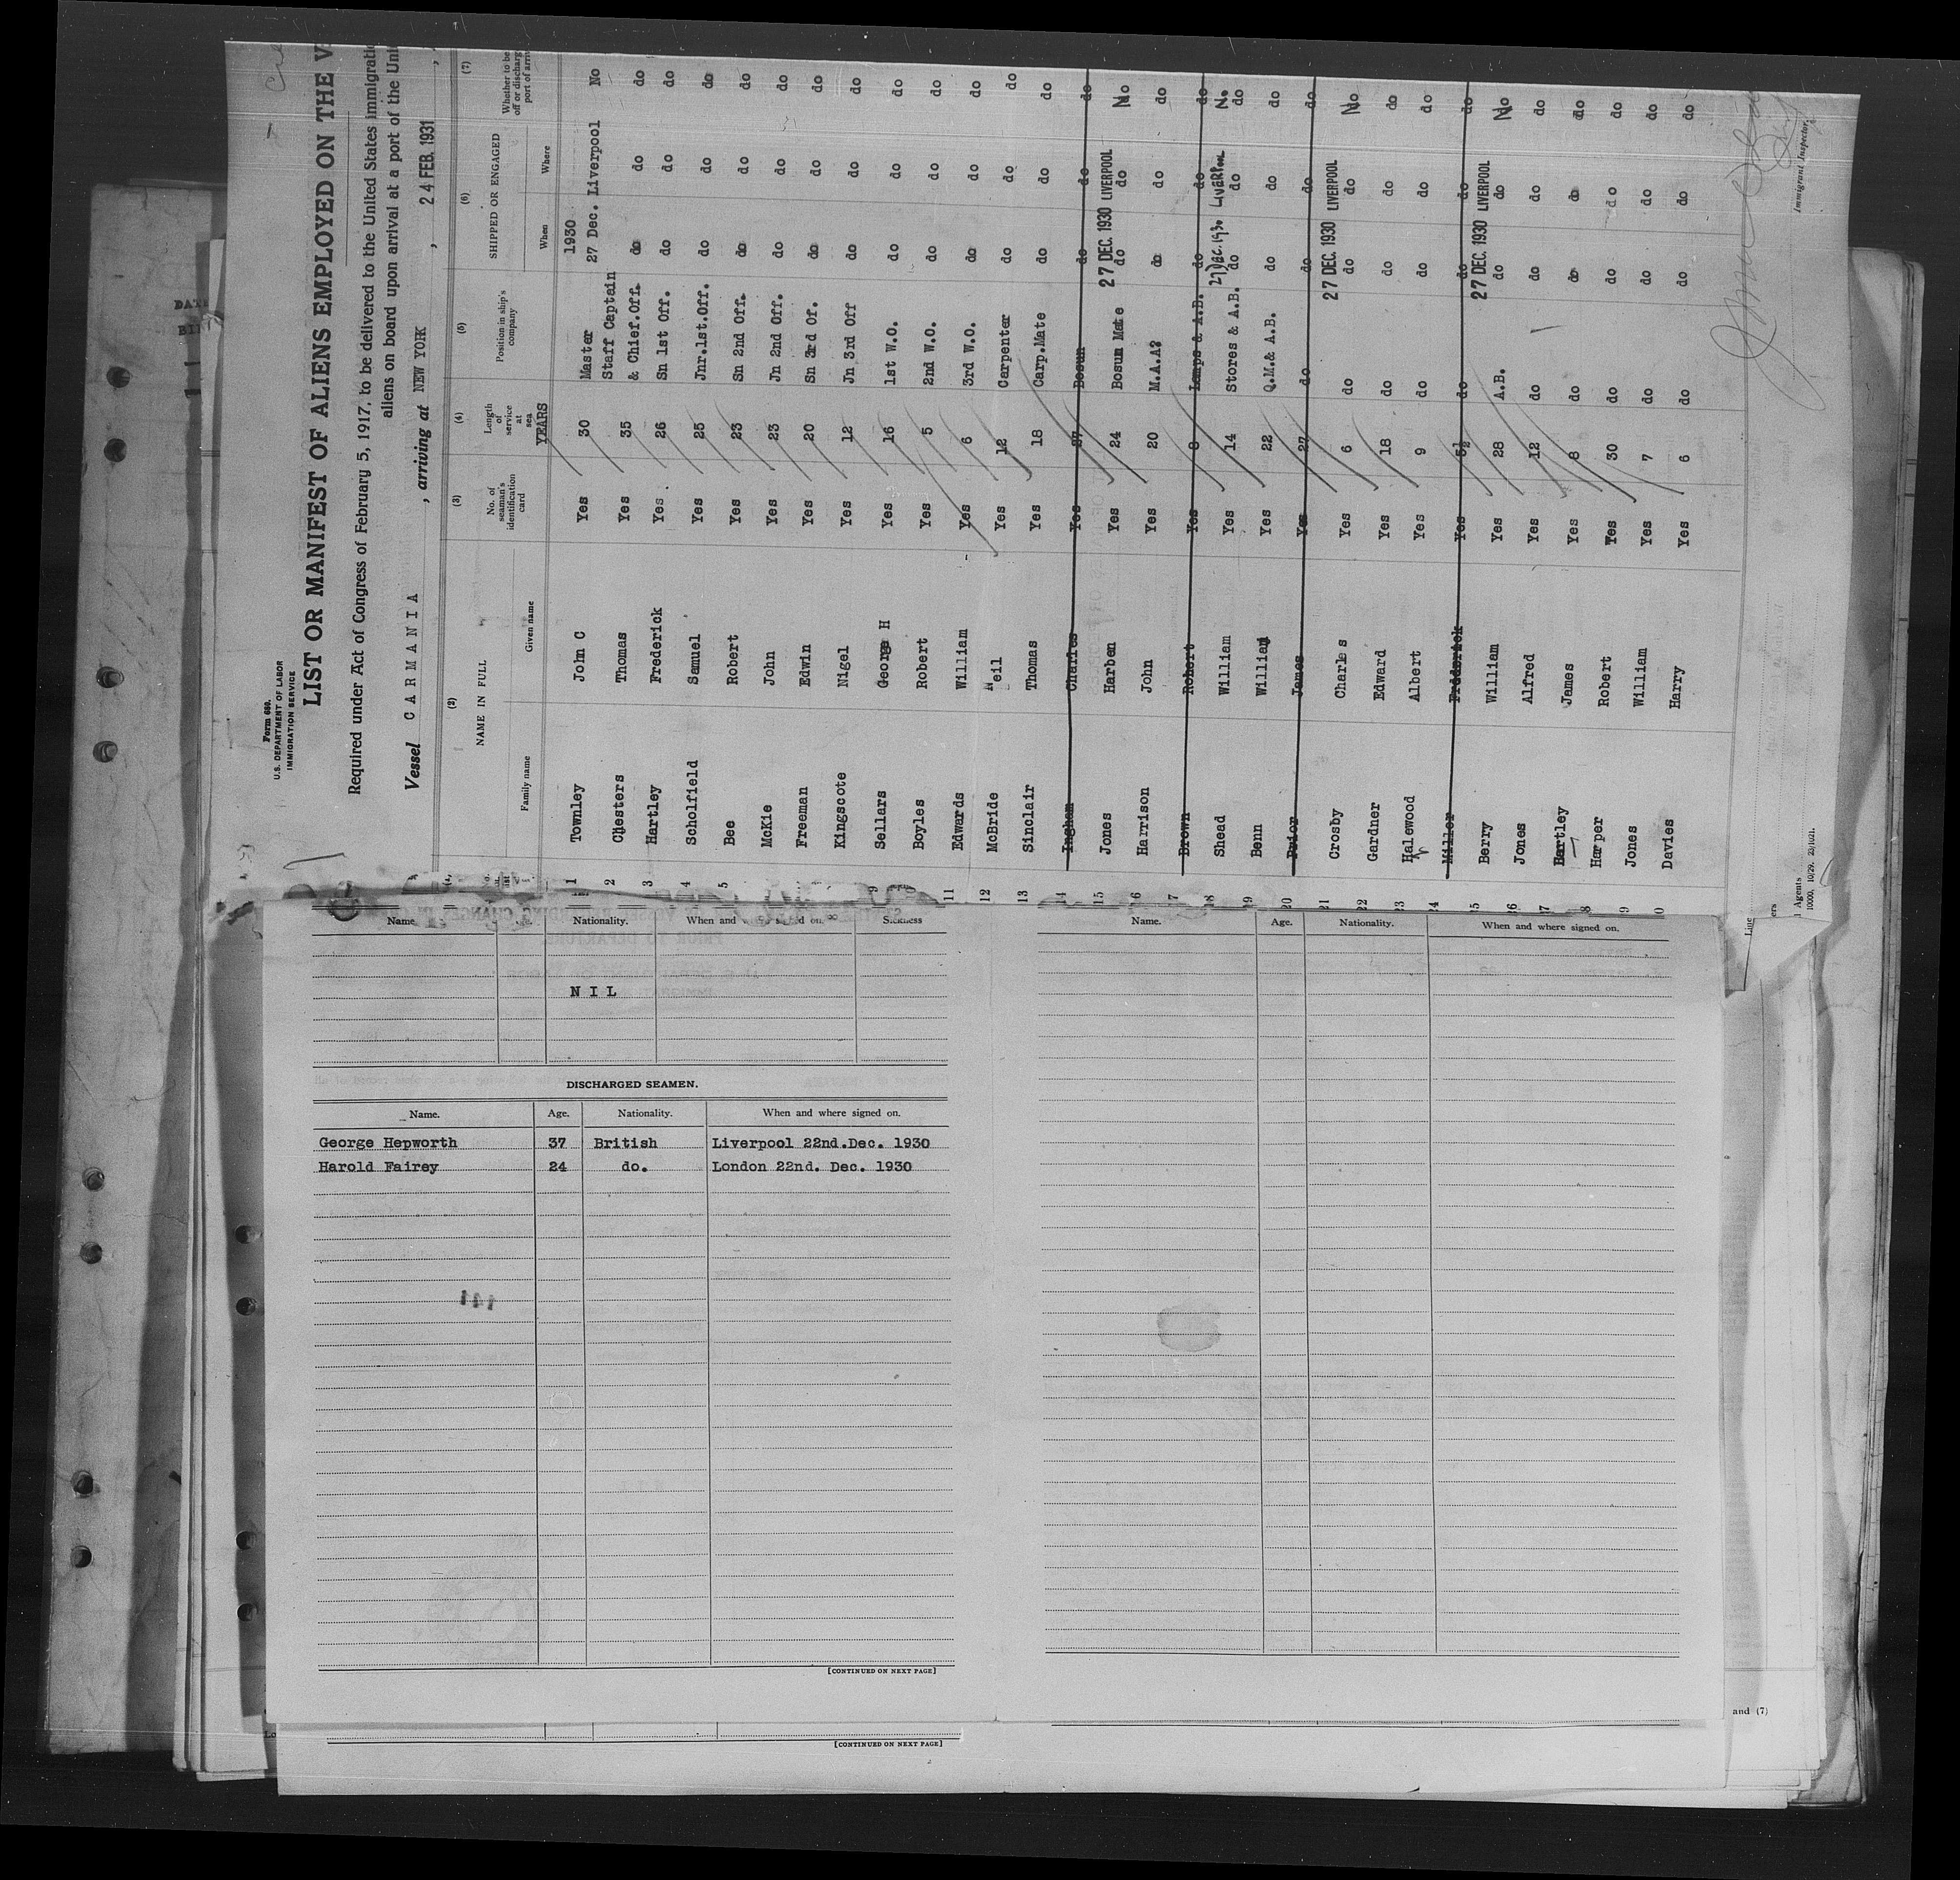 Form 689.
U.S. DEPARTMENT OF LABOR
IMMIGRATION SERVICE
LIST OR MANIFEST OF ALIENS EMPLOYED ON THE
Required under Act of Congress of February 5, 1917, to be delivered to the United States
aliens on board upon arrival at a port of the
Vessel CARMANIA, arriving at NEW YORK, 24 FEB. 1931,
(2) (3) (4) (5) (6) (7)
NAME IN FULL No. of seaman's identification card Length of service at sea Position in ship's company SHIPPED OR ENGAGED Whether to be
Family name Given name YEARS When Where
1930
1 Townley John C Yes 30 Master 27 Dec. Liverpool No
Staff Captain
2 Chesters Thomas Yes 35 & Chief.Off. do do do
3 Hartley Frederick Yes 26 Sn 1st Off. do do do
4 Scholfield Samuel Yes 25 Jnr.1st.Off. do do do
5 Bee Robert Yes 23 Sn 2nd Off. do do do
McKie John Yes 23 Jn 2nd Off. do do do
Freeman Edwin Yes 20 Sn 3rd Of. do do do
Kingscote Nigel Yes 12 Jn 3rd Off do do do
9 Sellars George H Yes 16 1st W.O. do do do
Boyles Robert Yes 5 2nd W.O. do do do
11 Edwards William Yes 6 3rd W.O. do do do
12 McBride Neil Yes 12 Carpenter do do do
13 Sinclair Thomas Yes 18 Carp.Mate do do do
14 Ingham Charles Yes 27 Bosun do do do
27 DEC. 1930 LIVERPOOL No
15 Jones Harben Yes 24 Bosun Mate do do
16 Harrison John Yes 20 M.A.A? do do do
17 Brown Robert Yes 8 Lamps & A.B. do do do
27 Dec. 1930 Liverpool No
18 Shead William Yes 14 Stores & A.B. do do do
19 Benn William Yes 22 Q.M.& A.B. do do do
20 Prior James Yes 27 do do do do
27 DEC. 1930 LIVERPOOL No
21 Crosby Charles Yes 6 do do do
22 Gardner Edward Yes 18 do do do do
23 Halewood Albert Yes 9 do do do do
24 Miller Frederick Yes 5½ do do do do
27 DEC. 1930 LIVERPOOL No
5 Berry William Yes 28 A.B. do do
6 Jones Alfred Yes 12 do do do do
7 Hartley James Yes 8 do do do do
8 Harper Robert Yes 30 do do do do
9 Jones William Yes 7 do do do do
0 Davies Harry Yes 6 do do do do
Immigrant Inspector.
Line
ers
Agents
Name. Age. Nationality. When and where signed on. Sickness
NIL
DISCHARGED SEAMEN.
Name. Age. Nationality. When and where signed on.
George Hepworth 37 British Liverpool 22nd.Dec. 1930
Harold Fairey 24 do. London 22nd. Dec. 1930
[CONTINUED ON NEXT PAGE]
[CONTINUED ON NEXT PAGE]
Name. Age. Nationality. When and where signed on.
and (7)